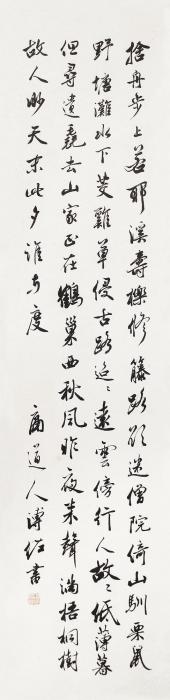 捨舟步上若耶溪壽櫟修藤路欲迷僧院倚山馴栗鼠
野塘灘水下茭雞草侵古路迢〻遠雲傍行人故〻低薄暮
但尋遺堯去山家正在鶴巢西秋風昨夜來聲滿梧桐樹
故人眇天末此夕誰與度
高道人溥佐書